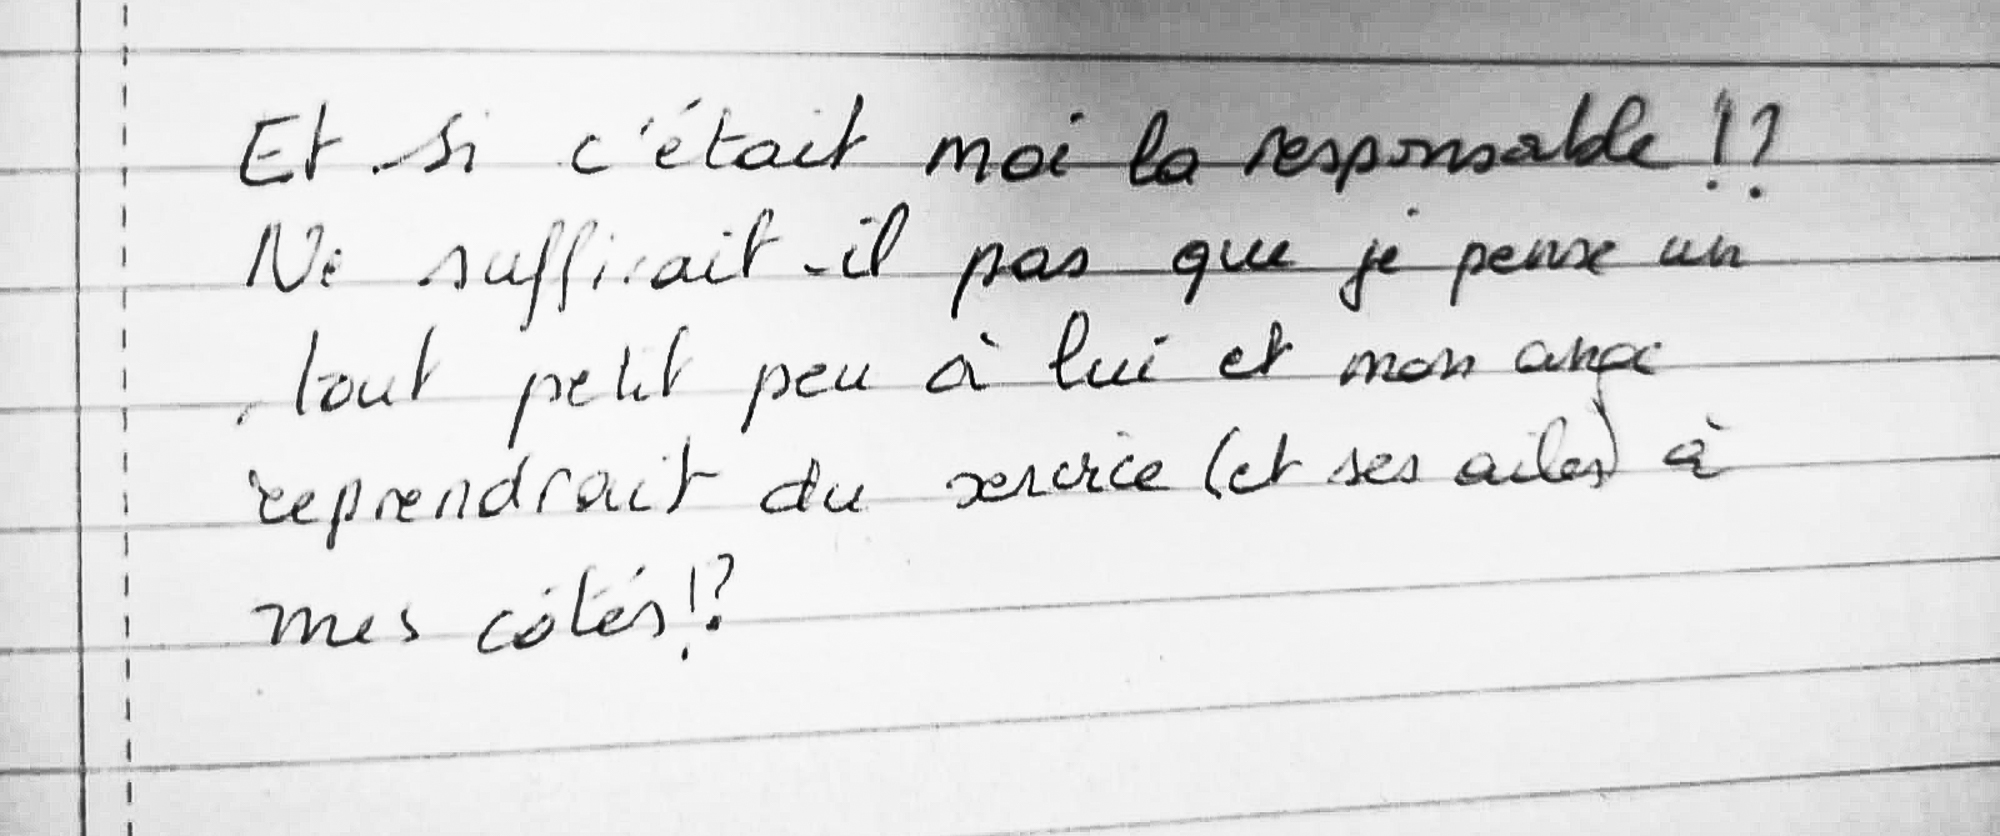 Et si c'était moi la responsable !?
Ne suffirait-il pas que je pense un
tout petit peu à lui et mon ange
reprendrait du service (et ses ailes) à
mes côtés !?